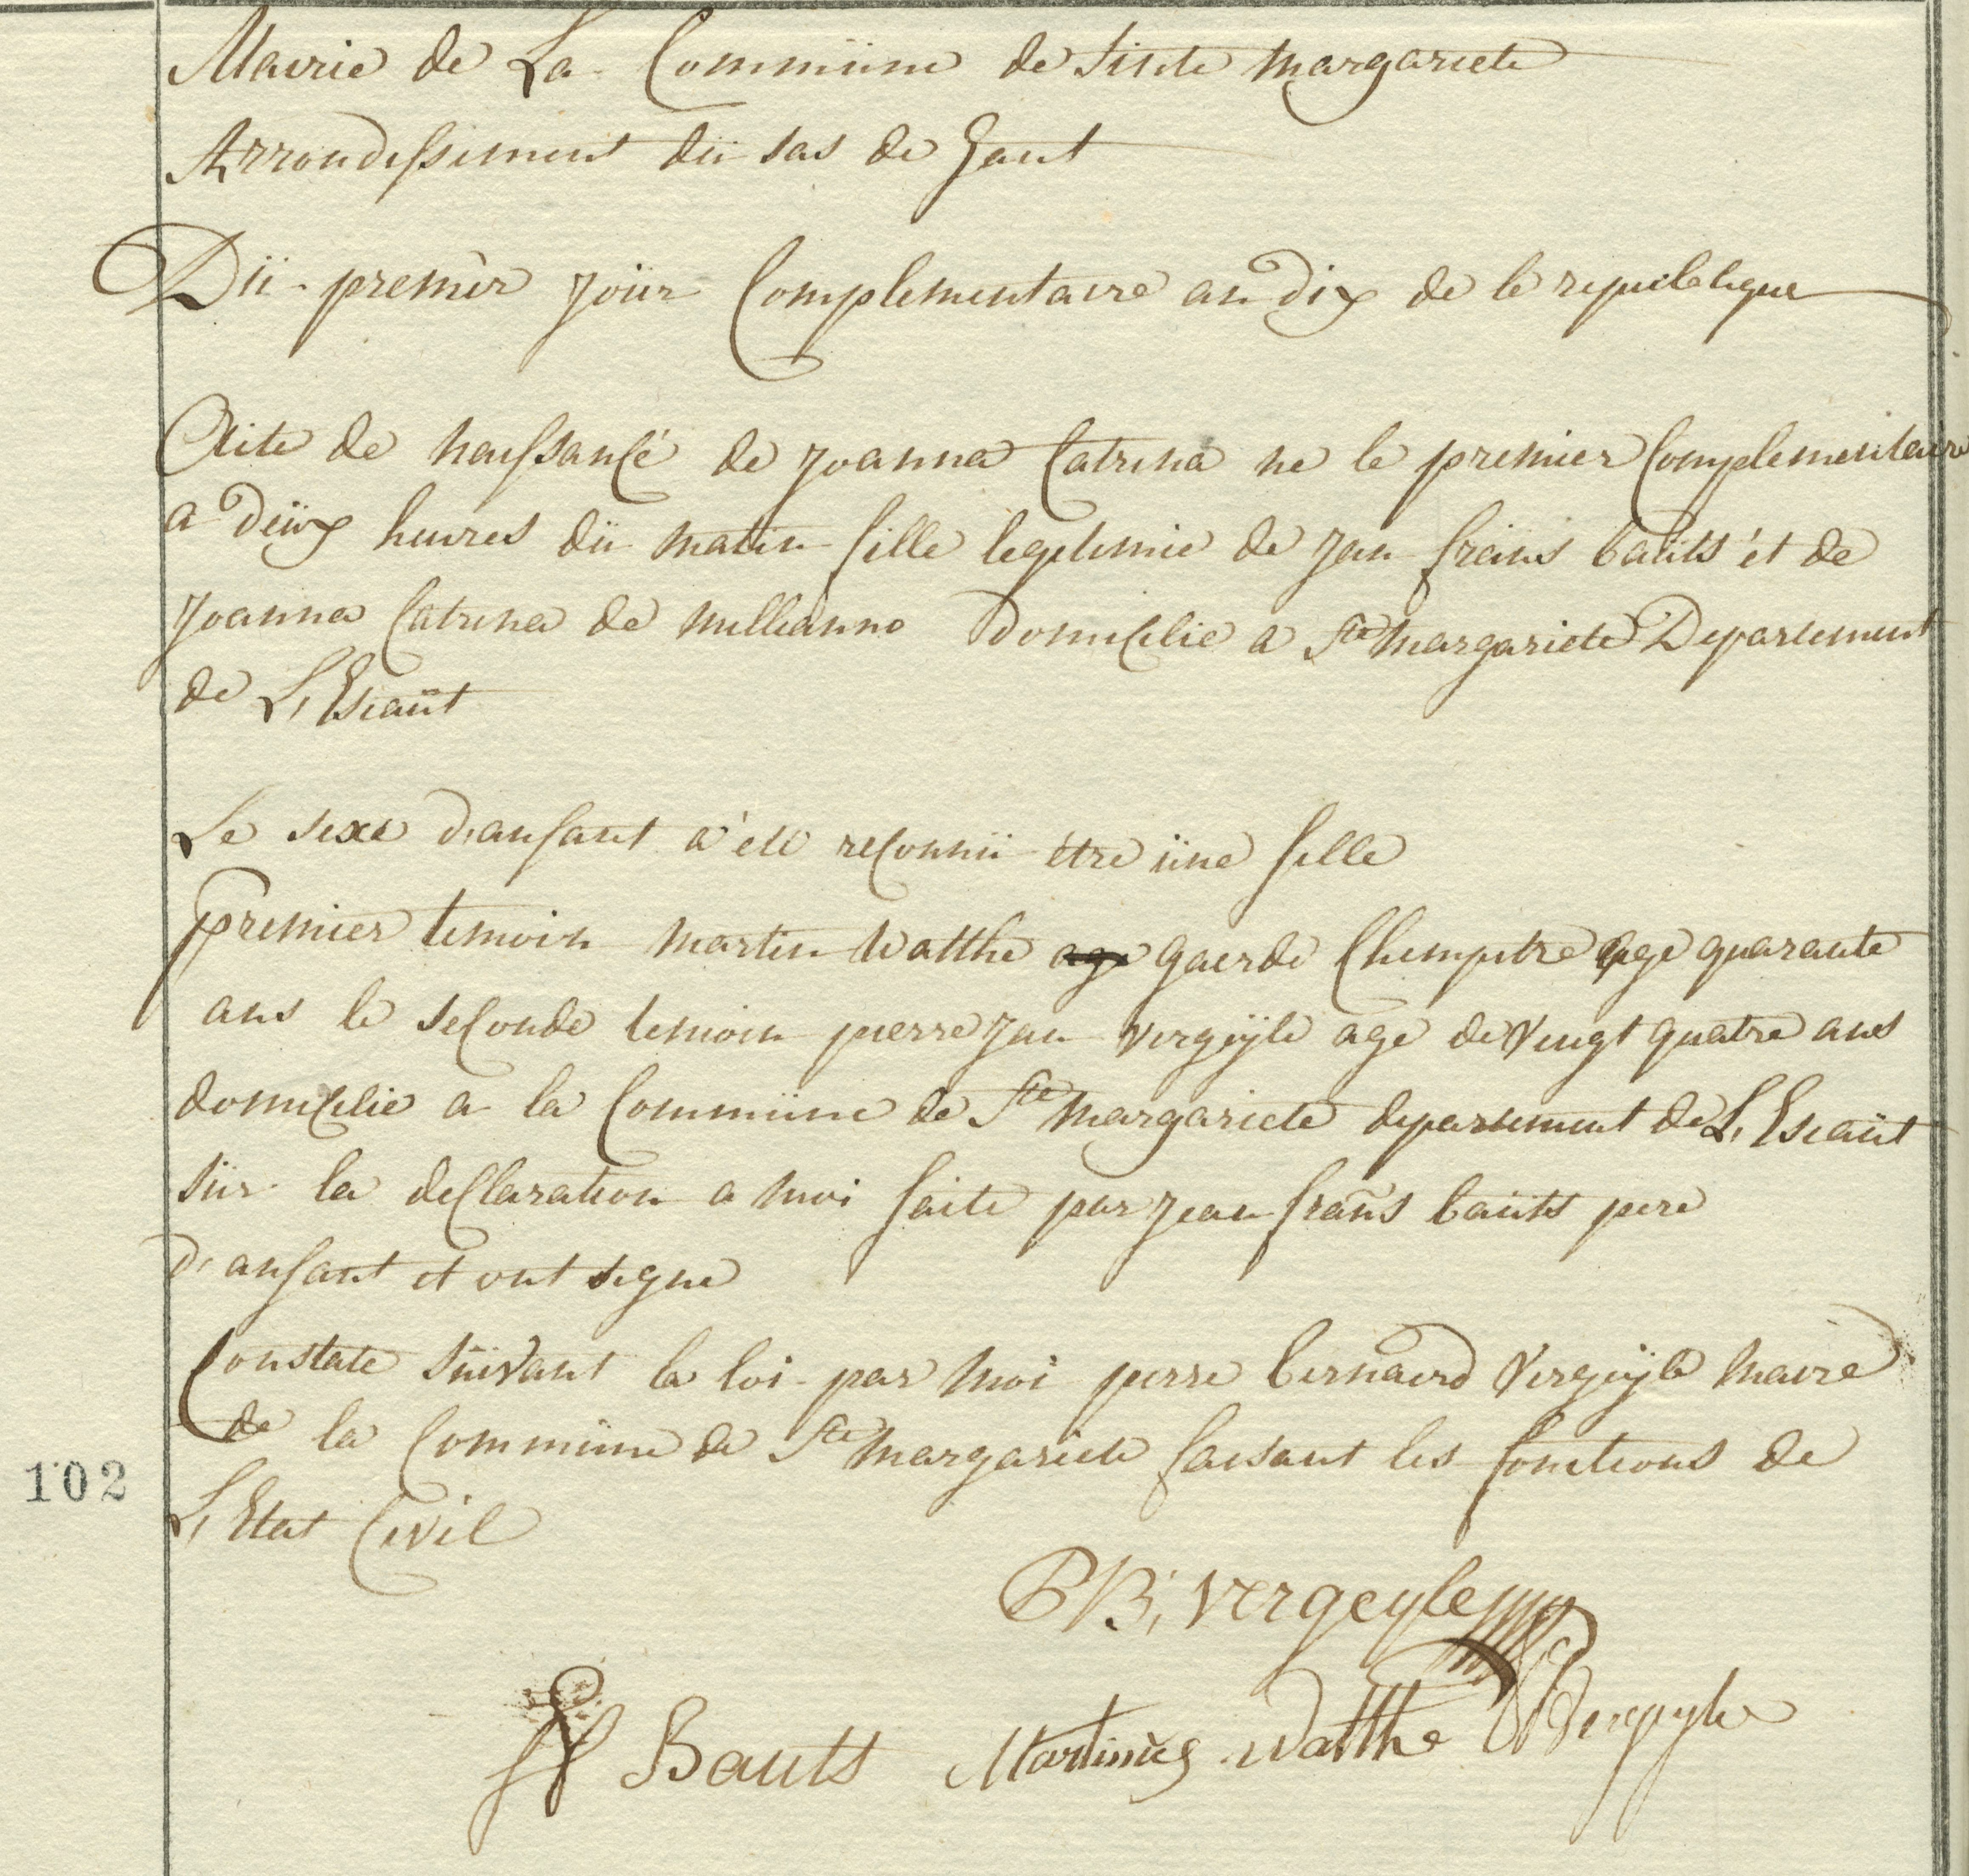 Mairie de La Commüne de Sinte Margariete
Arrondissement dü sas de Gant
Dü premier Joür Complementaire an Dix de le republique
Acte de naissance de Joanna Catrina ne le premier Complementaire
a Deüx heures dü matin fille legetimie de Jan frans baüts et de
Joanna Catrina de Millianno Domicilie a Ste Margariete Departement
de L, Escaüt
Le sexe d'anfant a été reconnü être üne fille
premier temoin Martin Watthe gaerde Chempetre age quarante
ans le seconde temoin pierre Jan vergeÿle age de Vengt quatre ans
domicilie a la Commüne de Ste Margariete departement de L, Escaüt
sür la declaration a moi faite par Jean frans baüts pere
d'anfant et ont segne
Constate süivant la loi par moi pierre bernaerd Vergeÿle maire
de la Commüne de Ste Margariete faisant les fonctions de
102
L, Etat Civil
PB, vergeyle
JF Bauts Martinüs Watthe PJ Vergeyle